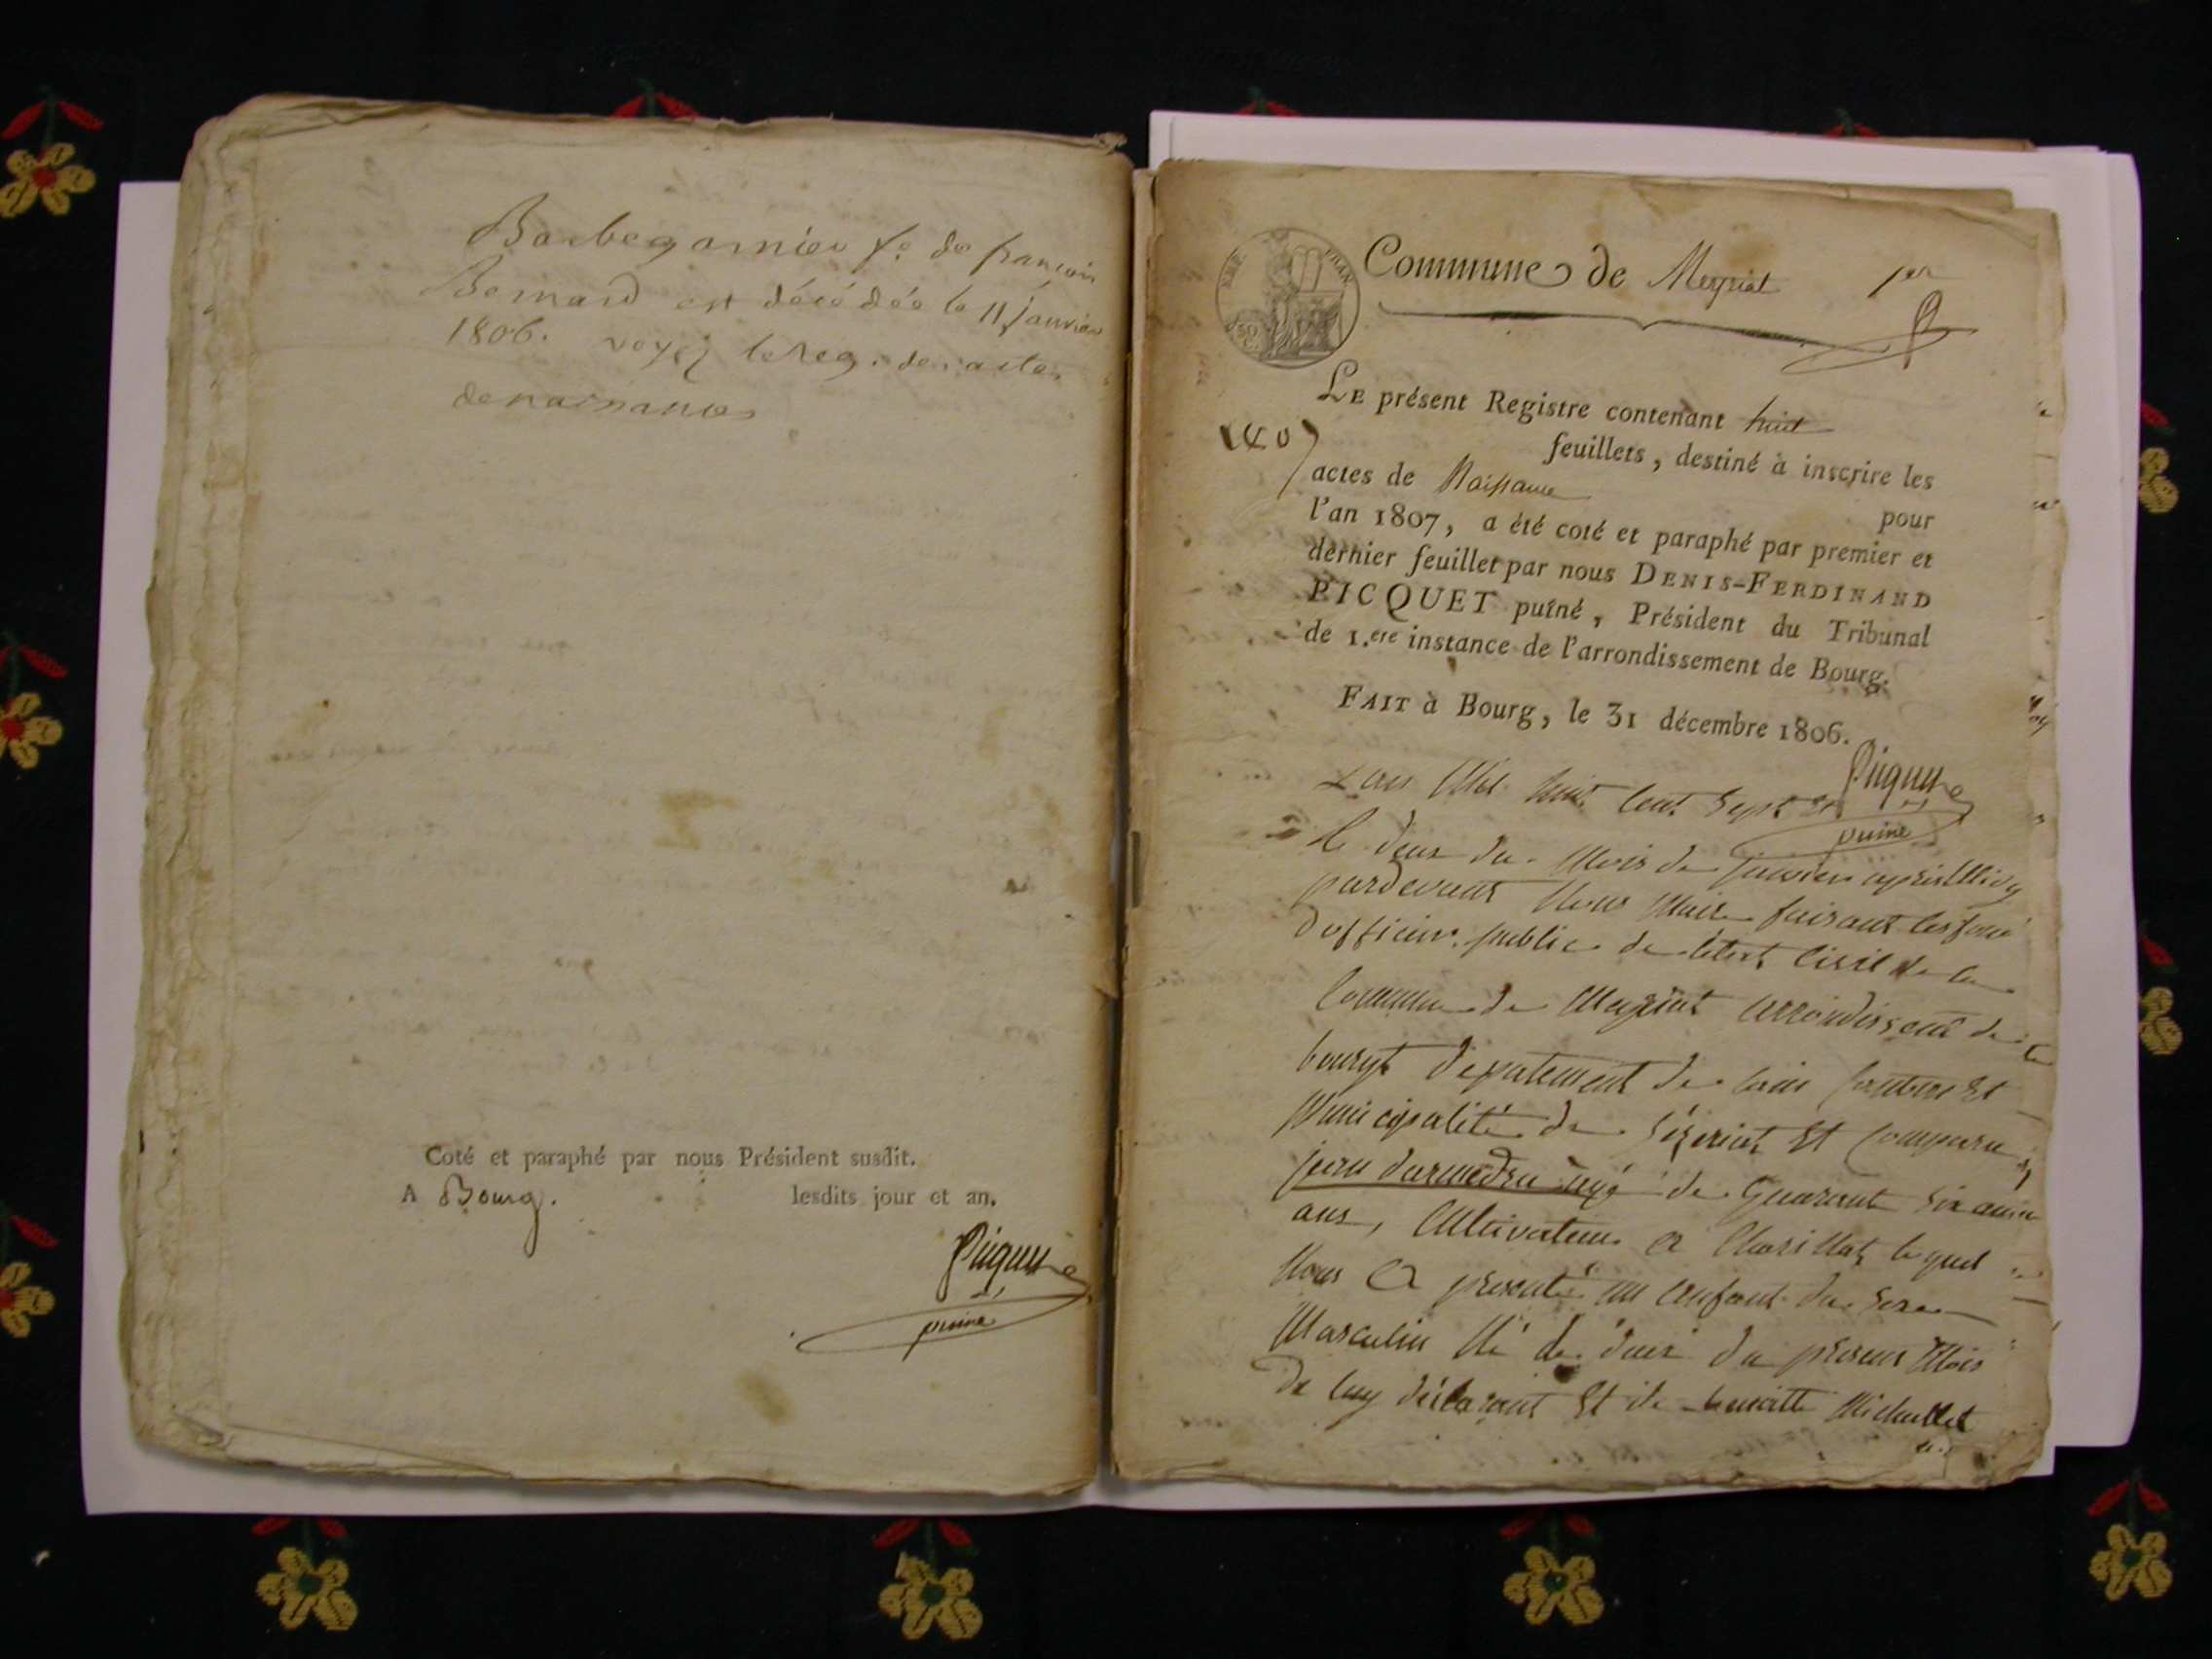 Barbe garnier fe. de francois
Bernard est décédée le 11 janvier
1806. voyez le reg. des actes
de naissances
Coté et paraphé par nous Président susdit.
A Bourg. lesdits jour et an.
Picquet
puiné
REP. FRAN.
50 C.
Commune de Meyriat 1er
LE présent Registre contenant huit
feuillets, destiné à inscrire les
actes de Naissance
pour
l'an 1807, a été coté et paraphé par premier et
dernier feuillet par nous DENIS-FERDINAND
PICQUET puîné, Président du Tribunal
de 1.ere instance de l'arrondissement de Bourg.
FAIT à Bourg, le 31 décembre 1806.
Picquet
puiné
Lan Mil huit Cent Sept et
le deux du Mois de janvier aprist Midy
pardevant Nous Maire faisant les fonc
dofficier public de letat Civil de la
Commune de Meyriat arrondissent de
bourgt depatement de lain Canton et
Municipalité de Séseriat Et Comparu
jean darmedru agé de Quarant six
ans, Cultivateur a Charillat lequel
Nous a presenté un enfant du sexe
Masculin Né le deux du presant Mois
De luy déclarant Et de benoitte Michallet